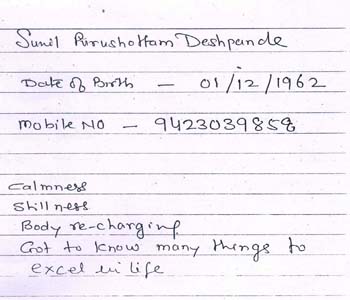 Sunil Purushottam Deshpande
Date of Birth — 01/12/1962
Mobile No — 9423039858
Calmness
Stillness
Body re-charging
Got to know many things to
excel in life